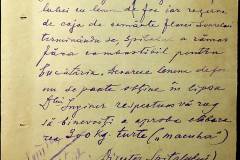 lubei cu lemn de foc iar rezerva
de coji de semințe floarei soarelui
terminându-se, Spitalul a rămas
fără combustibil pentru
bucătărie, deoarece lemne de foc
nu se poate obține în lipsa
D-lui Inginer respectuos vă rog
să binevoiți a aproba eliberarea
300 kg. turte („macuhă”)
Director Spitalului